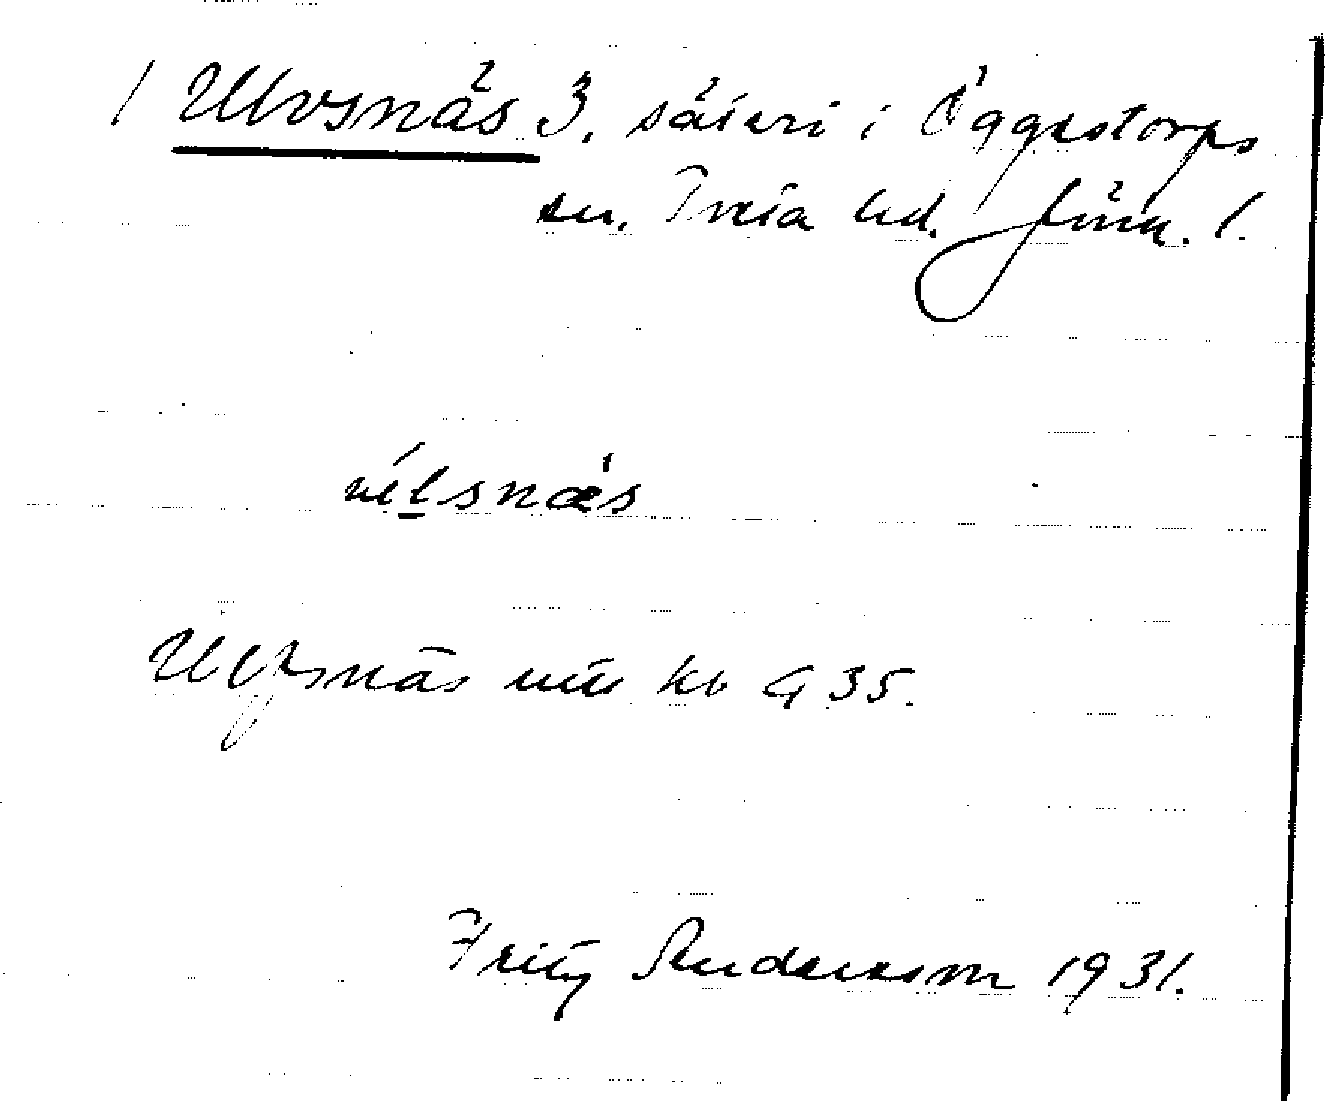 / Ulvsnäs 3. säteri i Öggestorps
sn. Tveta hd. Jönk. l.
úlsnä̀s
Ulfsnäs utt kb G 35.
Fritz Andersson 1931.